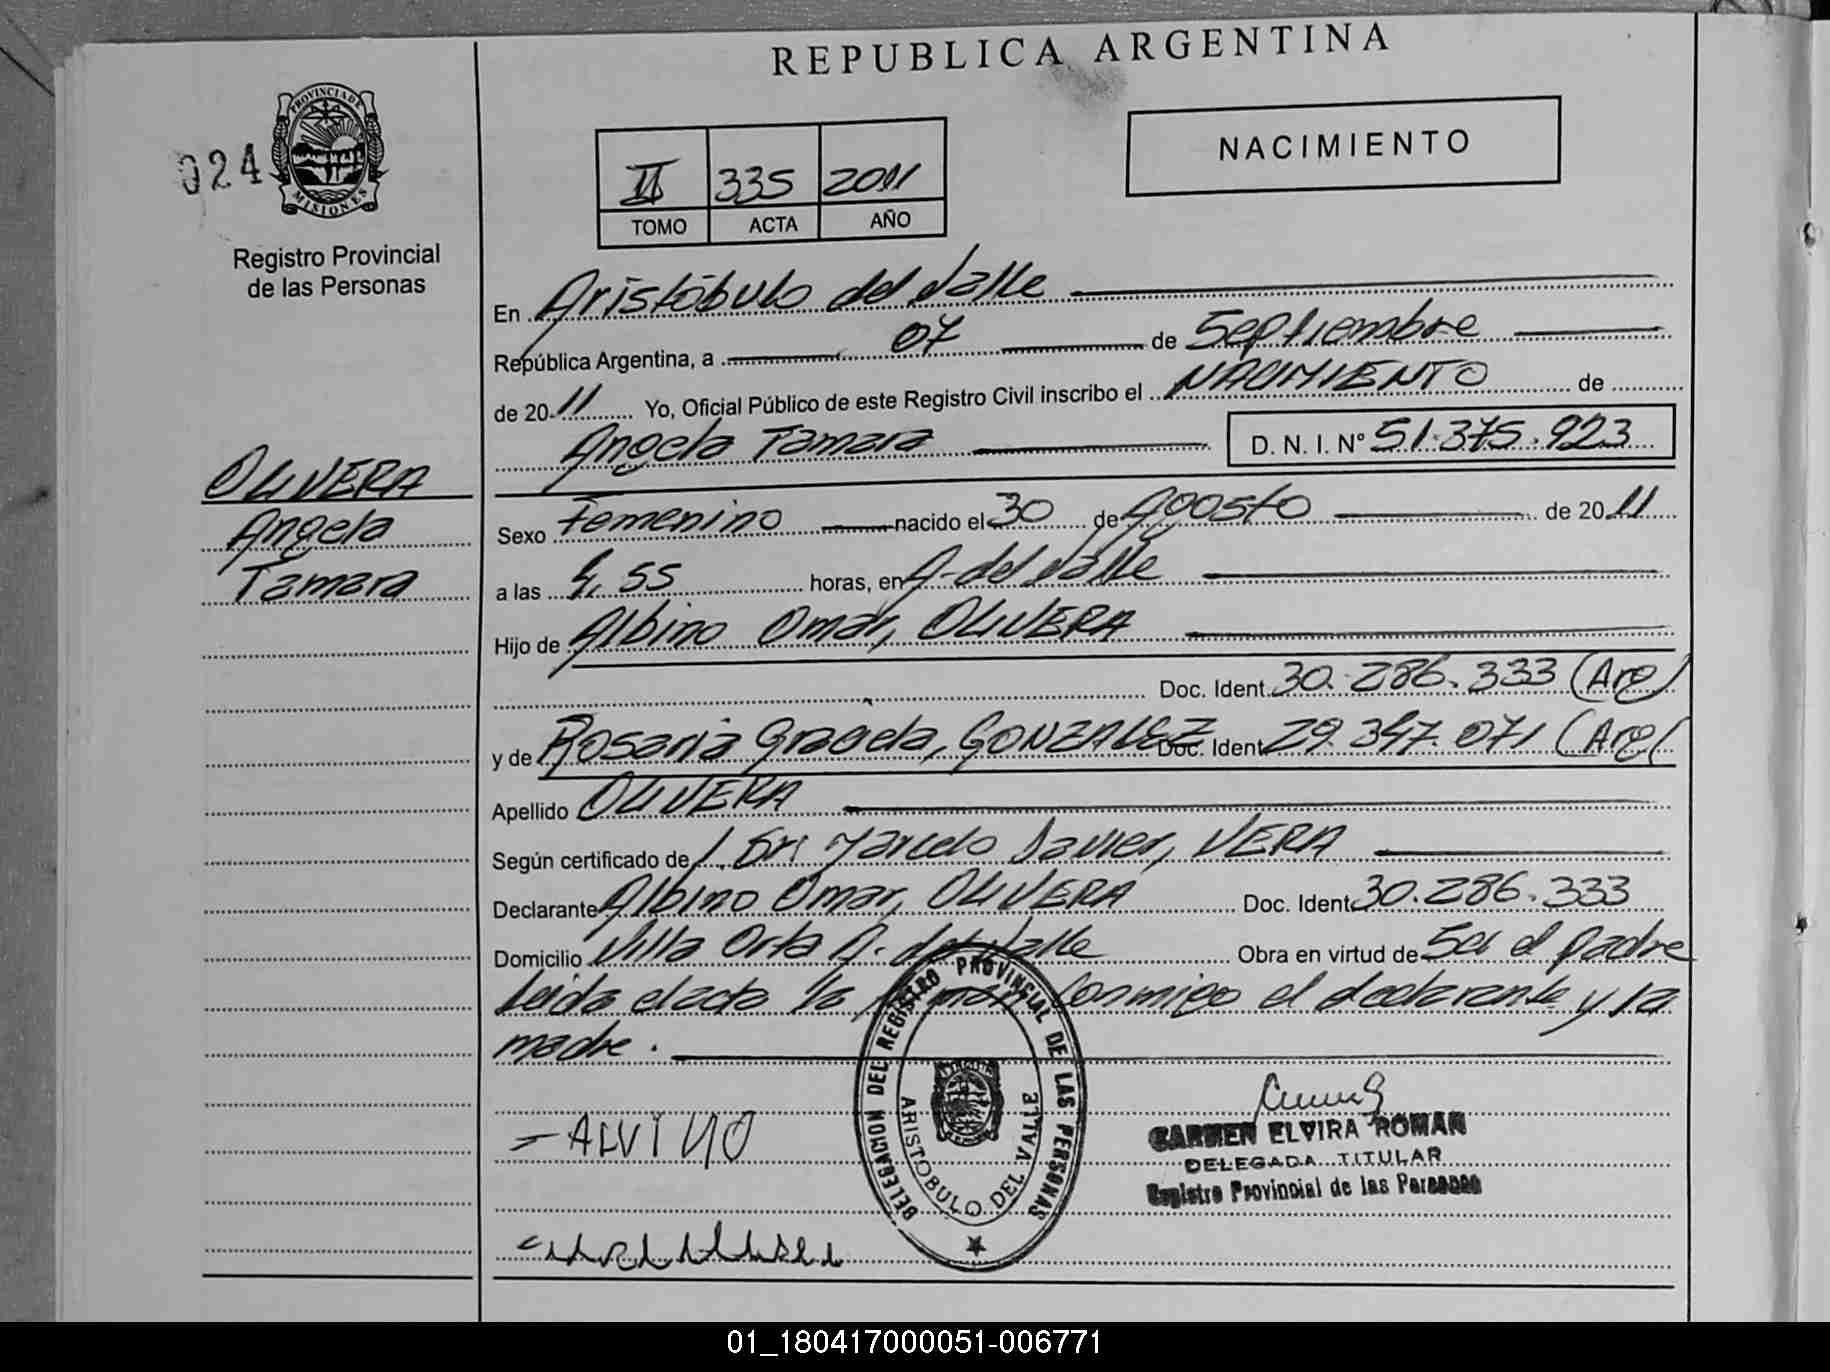 REPUBLICA ARGENTINA
024
PROVINCIA DE
MISIONES
Registro Provincial
de las Personas
NACIMIENTO
II 335 2011
TOMO ACTA AÑO
En Aristóbulo del Valle
República Argentina, a 07 de Septiembre
de 2011 Yo, Oficial Público de este Registro Civil inscribo el NACIMIENTO de
Angela Tamara D. N. I. Nº 51.375.923
OLIVERA
Angela
Tamara
Sexo Femenino nacido el 30 de Agosto de 2011
a las 4,55 horas, en A. del Valle
Hijo de Albino Omar, OLIVERA
Doc. Ident. 30.286.333 (Arg)
y de Rosaria Graciela, GONZALEZ Doc. Ident. 29.347.071 (Arg)
Apellido OLIVERA
Según certificado de Marcelo Javier, VERA
Declarante Albino Omar, OLIVERA Doc. Ident. 30.286.333
Domicilio Villa Orta A. del Valle Obra en virtud de Ser el padre
Leida el acta la firman Conmigo el declarante y la
madre.
DELEGACION DEL REGISTRO PROVINCIAL DE LAS PERSONAS
ARISTOBULO DEL VALLE
ALVINO
CARMEN ELVIRA ROMAN
DELEGADA TITULAR
Registro Provincial de las Personas
01_180417000051-006771